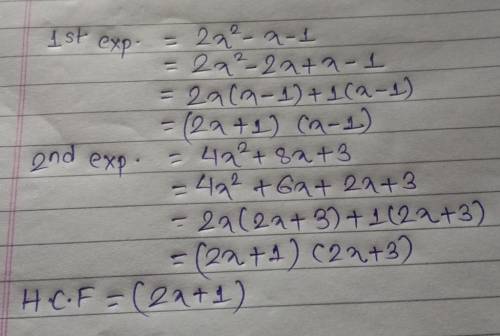 1st exp. = 2x² - x - 1
= 2x² - 2x + x - 1
= 2x(x - 1) + 1(x - 1)
= (2x + 1) (x - 1)
2nd exp. = 4x² + 8x + 3
= 4x² + 6x + 2x + 3
= 2x(2x + 3) + 1(2x + 3)
= (2x + 1) (2x + 3)
H.C.F = (2x + 1)